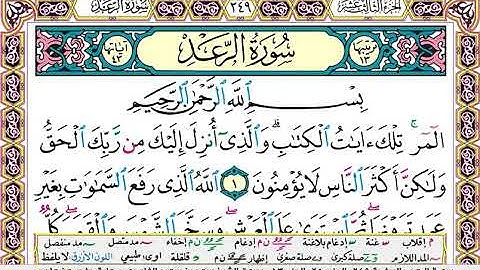 سُورَةُ الرَّعْدِ ٢٤٩ الجزء الثالث عشر
سُورَةُ الرَّعْدِ
بِسْمِ ٱللَّهِ ٱلرَّحْمَٰنِ ٱلرَّحِيمِ
الٓمٓر ۚ تِلْكَ ءَايَٰتُ ٱلْكِتَٰبِ ۗ وَٱلَّذِىٓ أُنزِلَ إِلَيْكَ مِن رَّبِّكَ ٱلْحَقُّ
وَلَٰكِنَّ أَكْثَرَ ٱلنَّاسِ لَا يُؤْمِنُونَ ١ ٱللَّهُ ٱلَّذِى رَفَعَ ٱلسَّمَٰوَٰتِ بِغَيْرِ
م إقلاب غنة م ن إدغام بلاغنة م ن إدغام م ن إخفاء مد متصل مد منفصل
المد اللازم صلة كبرى صلة صغرى إظهار م ن قلقلة أوى طبيعي اللون الأزرق لا يلفظ